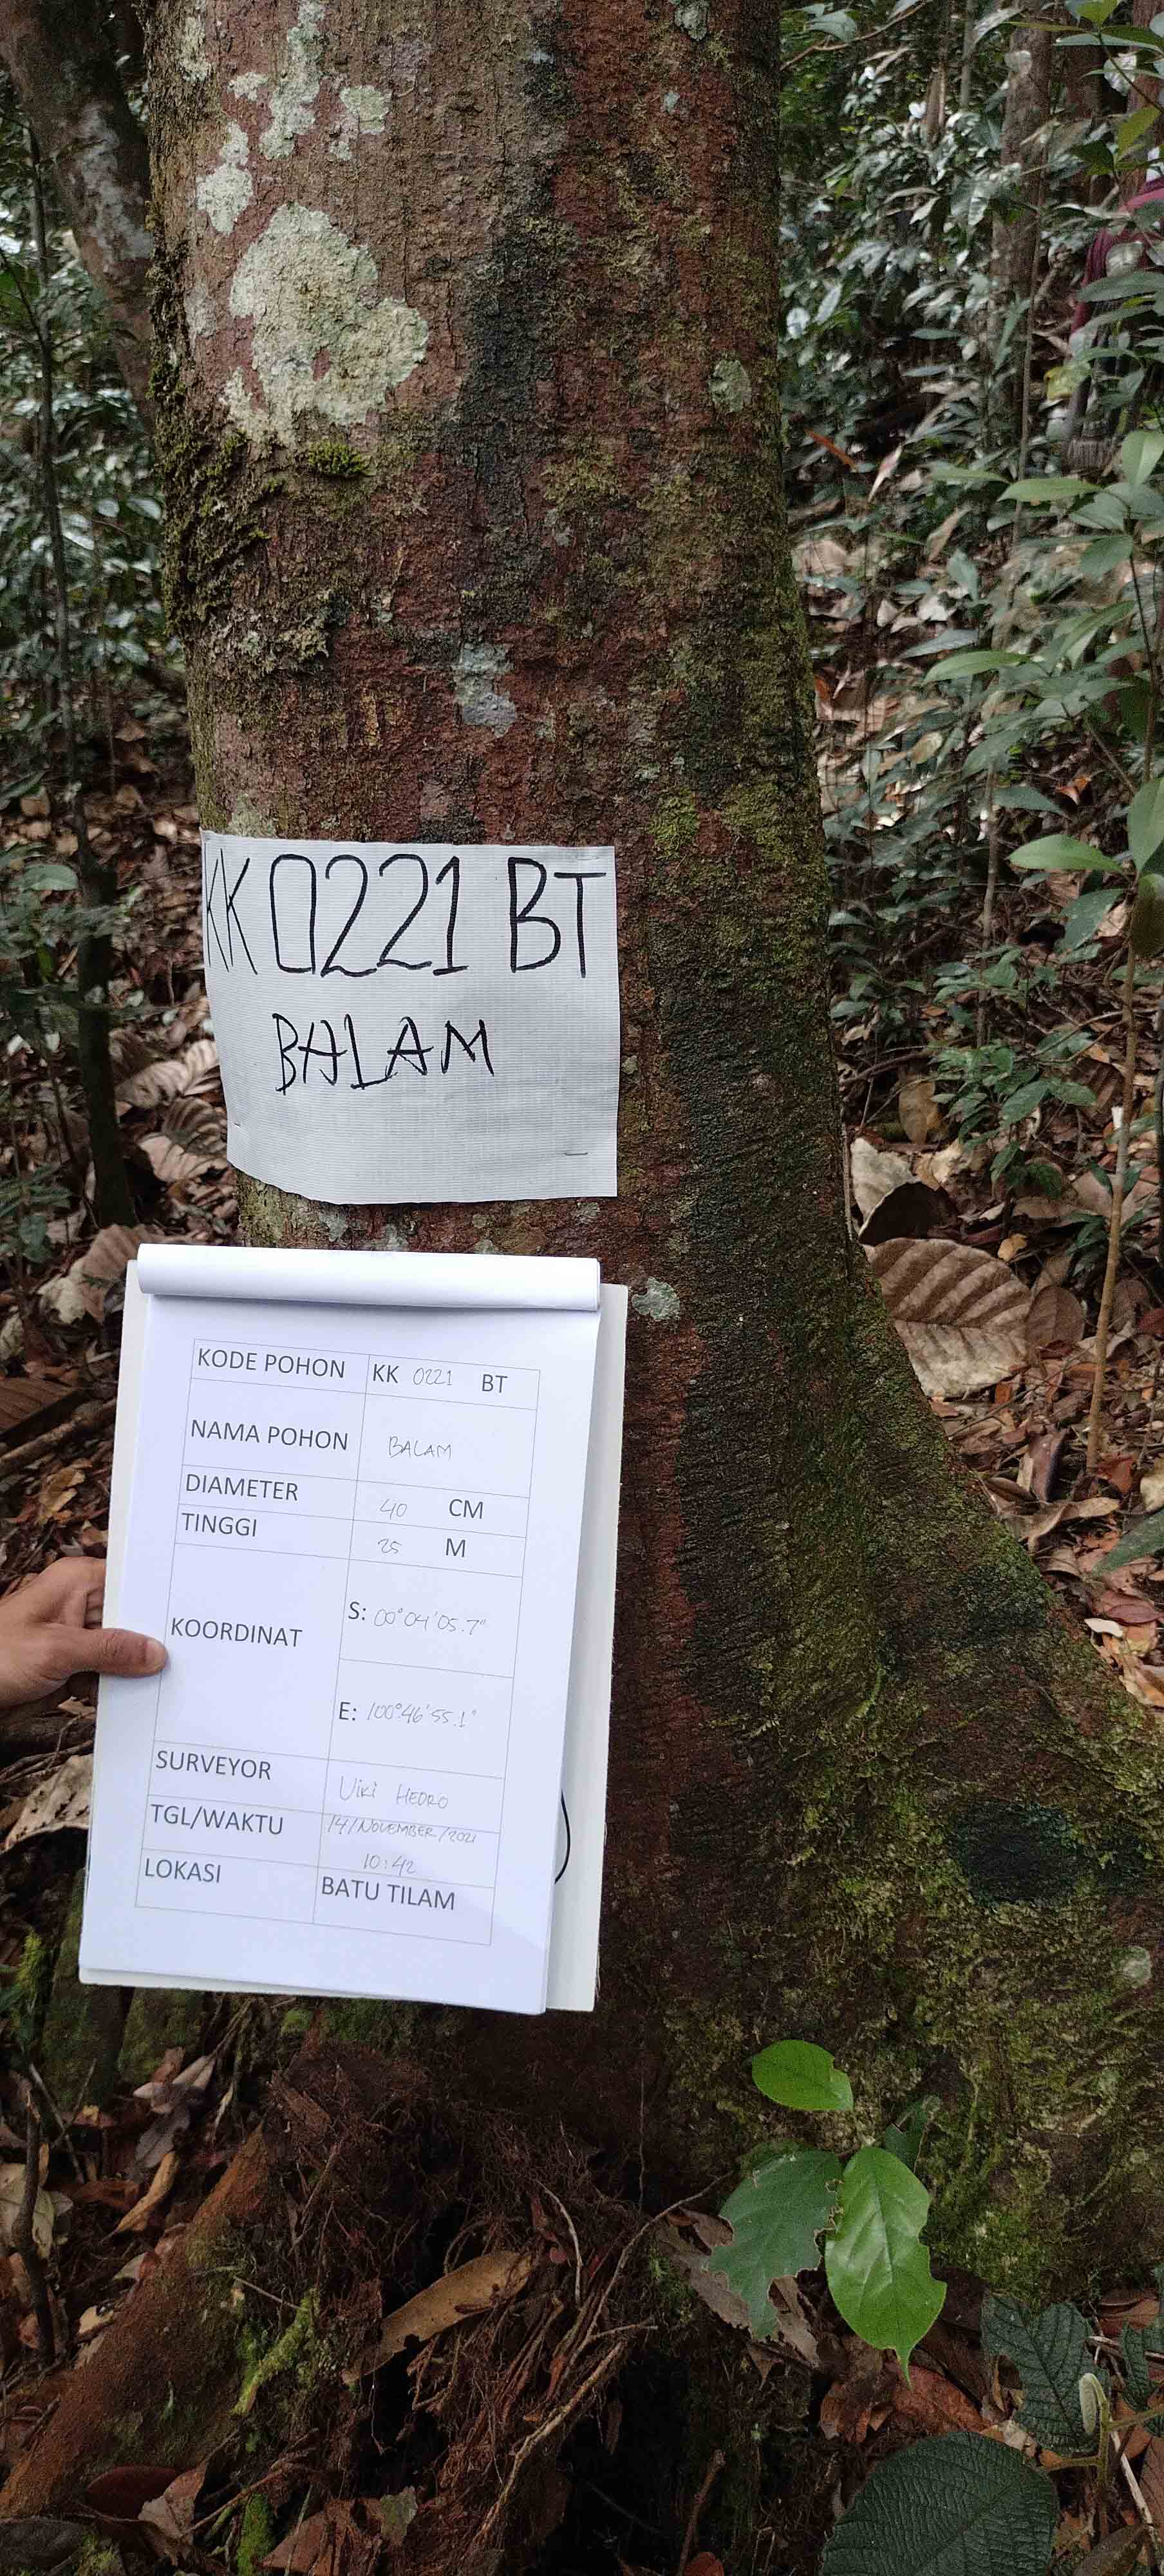 KK 0221 BT
BALAM
KODE POHON KK 0221 BT
NAMA POHON BALAM
DIAMETER 40 CM
TINGGI 25 M
KOORDINAT
S: 00°04'05.7"
E: 100°46'55.1"
SURVEYOR Uiki HEDRO
TGL/WAKTU 14/NOVEMBER/2021
10:42
LOKASI BATU TILAM